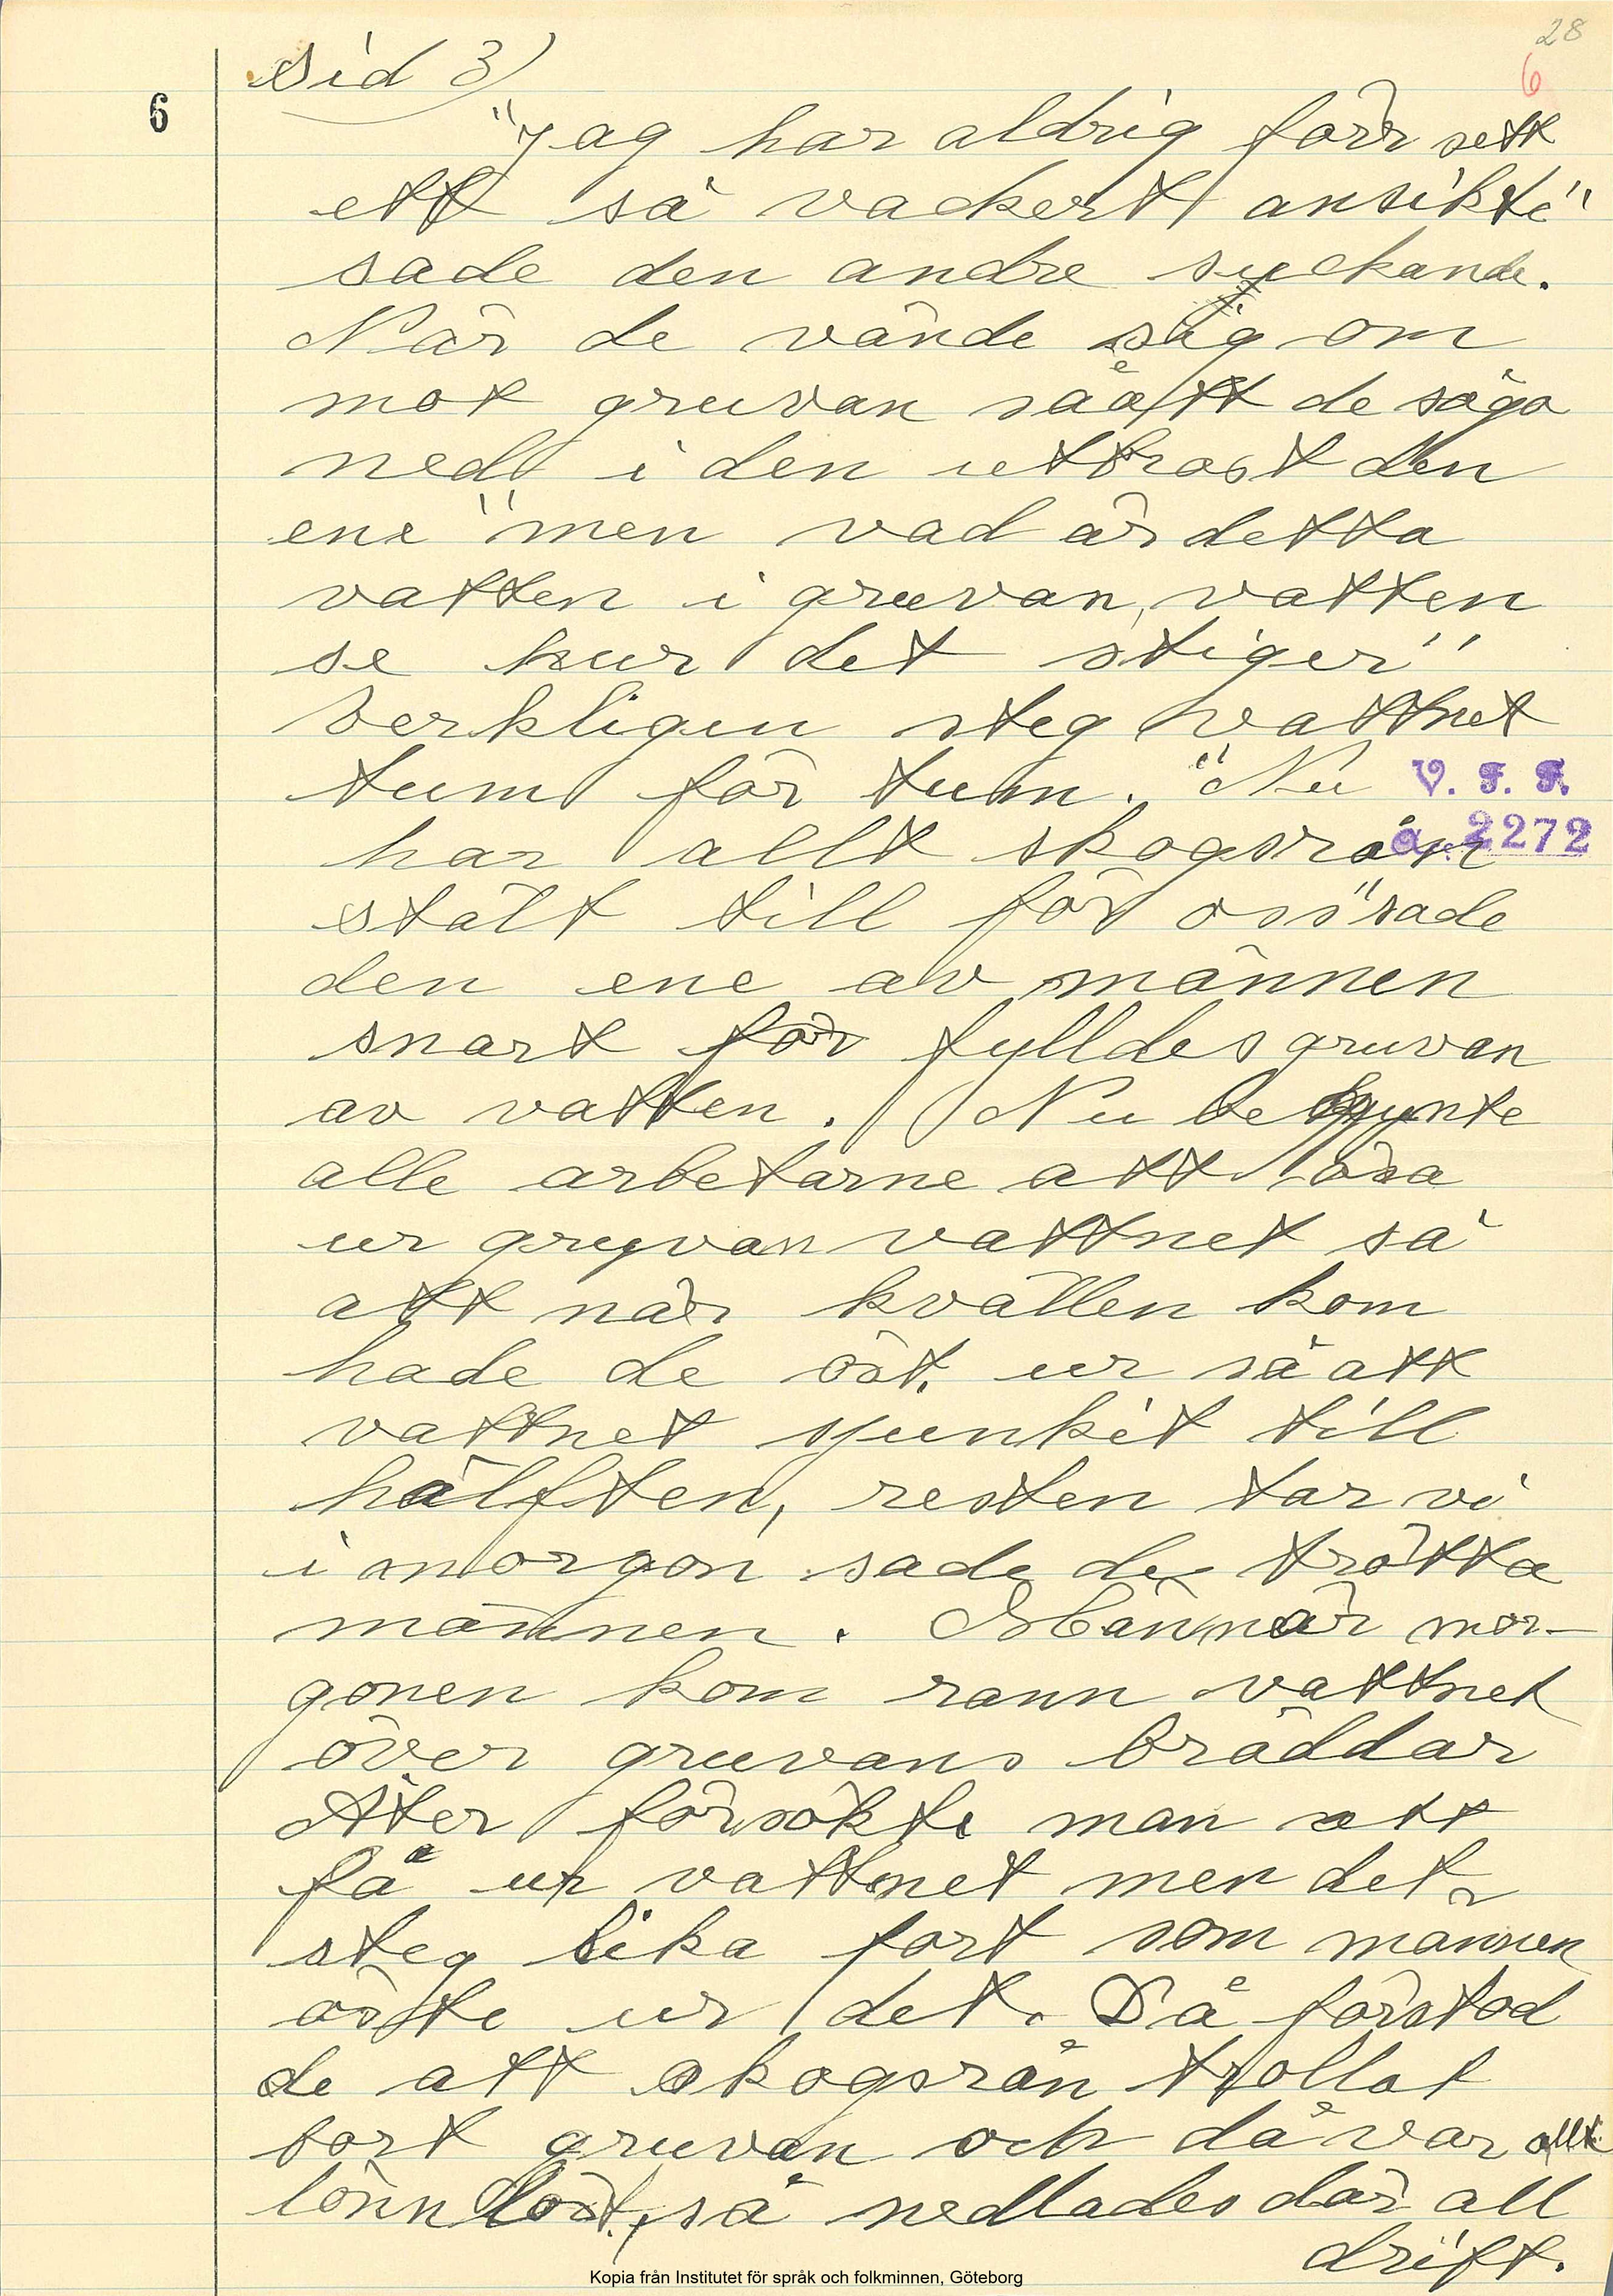 28
sid 3)
6
6
"Jag har aldrig förr sett
ett så vackert ansikte"
sade den andre suckande.
När de vände sig om
mot gruvan så att de såga
ned i den utbrast den
ene "men vad är detta
vatten i gruvan, vatten
se hur det stiger"
Verkligen steg vattnet
tum för tum. "Nu
V. F. F.
har allt skogsrån
a. 2272
stält till för oss" sade
den ene av männen
snart för fylldes gruvan
av vatten. Nu begynte
alle arbetarne att ösa
ur gruvan vattnet så
att när kvällen kom
hade de öst ur så att
vattnet sjunkit till
hälften, resten tar vi
i morgon sade de trötta
männen. Men när mor-
gonen kom rann vattnet
över gruvans bräddar
Åter försökte man att
få ur vattnet men det
steg lika fort som männen
öste ur det. Då förstod
de att skogsrån trollat
bort gruvan och då var allt
lönnlöst, så nedlades där all
drift.
Kopia från Institutet för språk och folkminnen, Göteborg